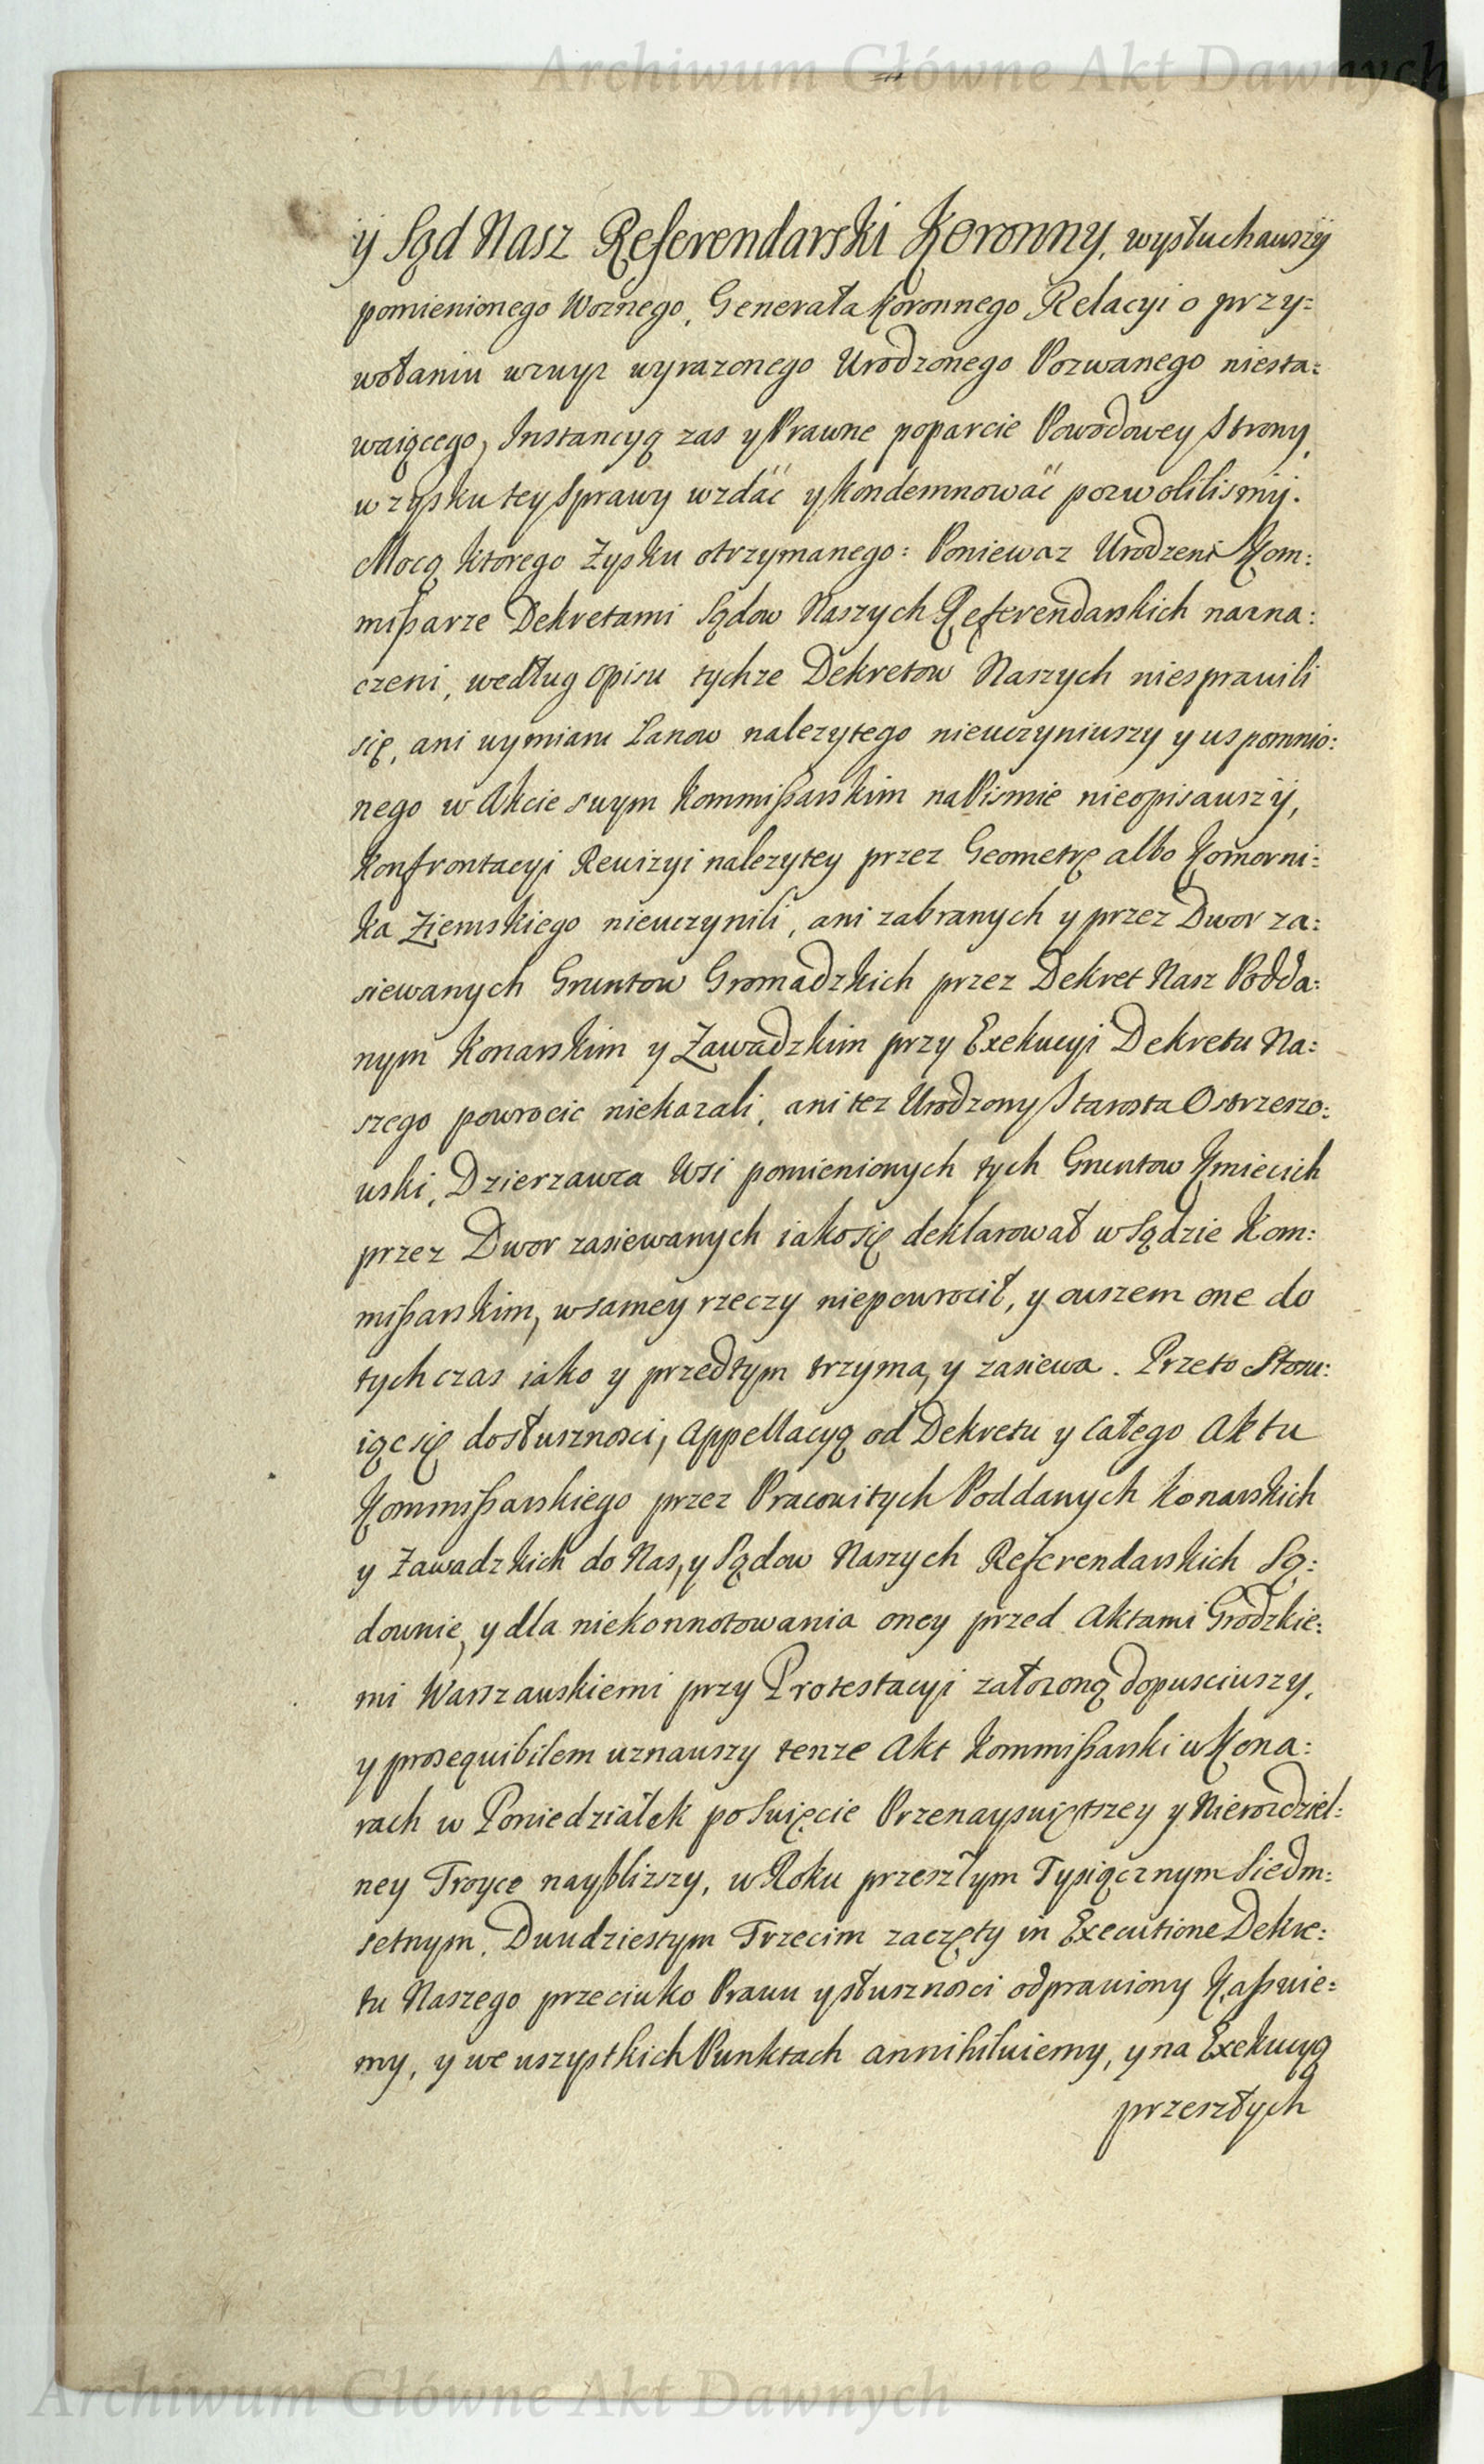 Archiwum Główne Akt Dawnych
y Sąd Nasz Referendarski Koronny, wysłuchawszÿ
pomienionego Woznego, Generała Koronnego Relacyi o przy=
wołaniu wzwyz wyrazonego Urodzonego Pozwanego niesta=
waiącego, Instancyą zas y Prawne poparcie Powodowey Strony,
w zysku tey Sprawy wzdać y Kondemnować pozwolilismÿ.
Mocą ktorego Zysku otrzymanego: Poniewaz Urodzeni Kom:
mißarze Dekretami Sądow Naszych Referendarskich nazna:
czeni, według opisu tychze Dekretow Naszych niesprawili
się, ani wymiaru Łanow nalezytego nieuczyniwszy y uspomnio:
nego w Akcie swym Kommißarskim na Pismie nieopisawszÿ,
Konfrontacyi Rewizyi nalezytey przez Geometrę albo Komorni:
ka Ziemskiego nieuczynili, ani zabranych y przez Dwor za:
siewanych Gruntow Gromadzkich przez Dekret Nasz Podda:
nym Konarskim y Zawadzkim przy Exekucyi Dekretu Na:
szego powrocic niekazali, ani tez Urodzony Starosta Ostrzeszo:
wski, Dzierzawca Wsi pomienionych tych Gruntow Kmiecich
przez Dwor zasiewanych iako się deklarował w Sądzie Kom:
mißarskim, w samey rzeczy niepowrocił, y owszem one do
tych czas iako y przedtym trzyma, y zasiewa. Przeto Stosu:
iąc się do słusznosci, Appellacyą od Dekretu y całego Aktu
Kommißarskiego przez Pracowitych Poddanych Konarskich
y Zawadzkich do Nas, y Sądow Naszych Referendarskich Są:
downie, y dla niekonnotowania oney przed Aktami Grodzkie:
mi Warszawskiemi przy Protestacyi załozoną dopusciwszy,
y prosequibilem uznawszy tenze Akt Kommißarski w Kona:
rach w Poniedziałek po Swięcie Przenayswiętszey y Nierozdziel:
ney Troyce nayblizszy, w Roku przeszłym Tysiącznym Siedm:
setnym, Dwudziestym Trzecim zaczęty in Executione Dekre:
tu Naszego przeciwko Prawu y słusznosci odprawiony Kaßuie:
my, y we wszystkich Punktach annihiluiemy, y na Exekucyą
przeszłych
Archiwum Główne Akt Dawnych